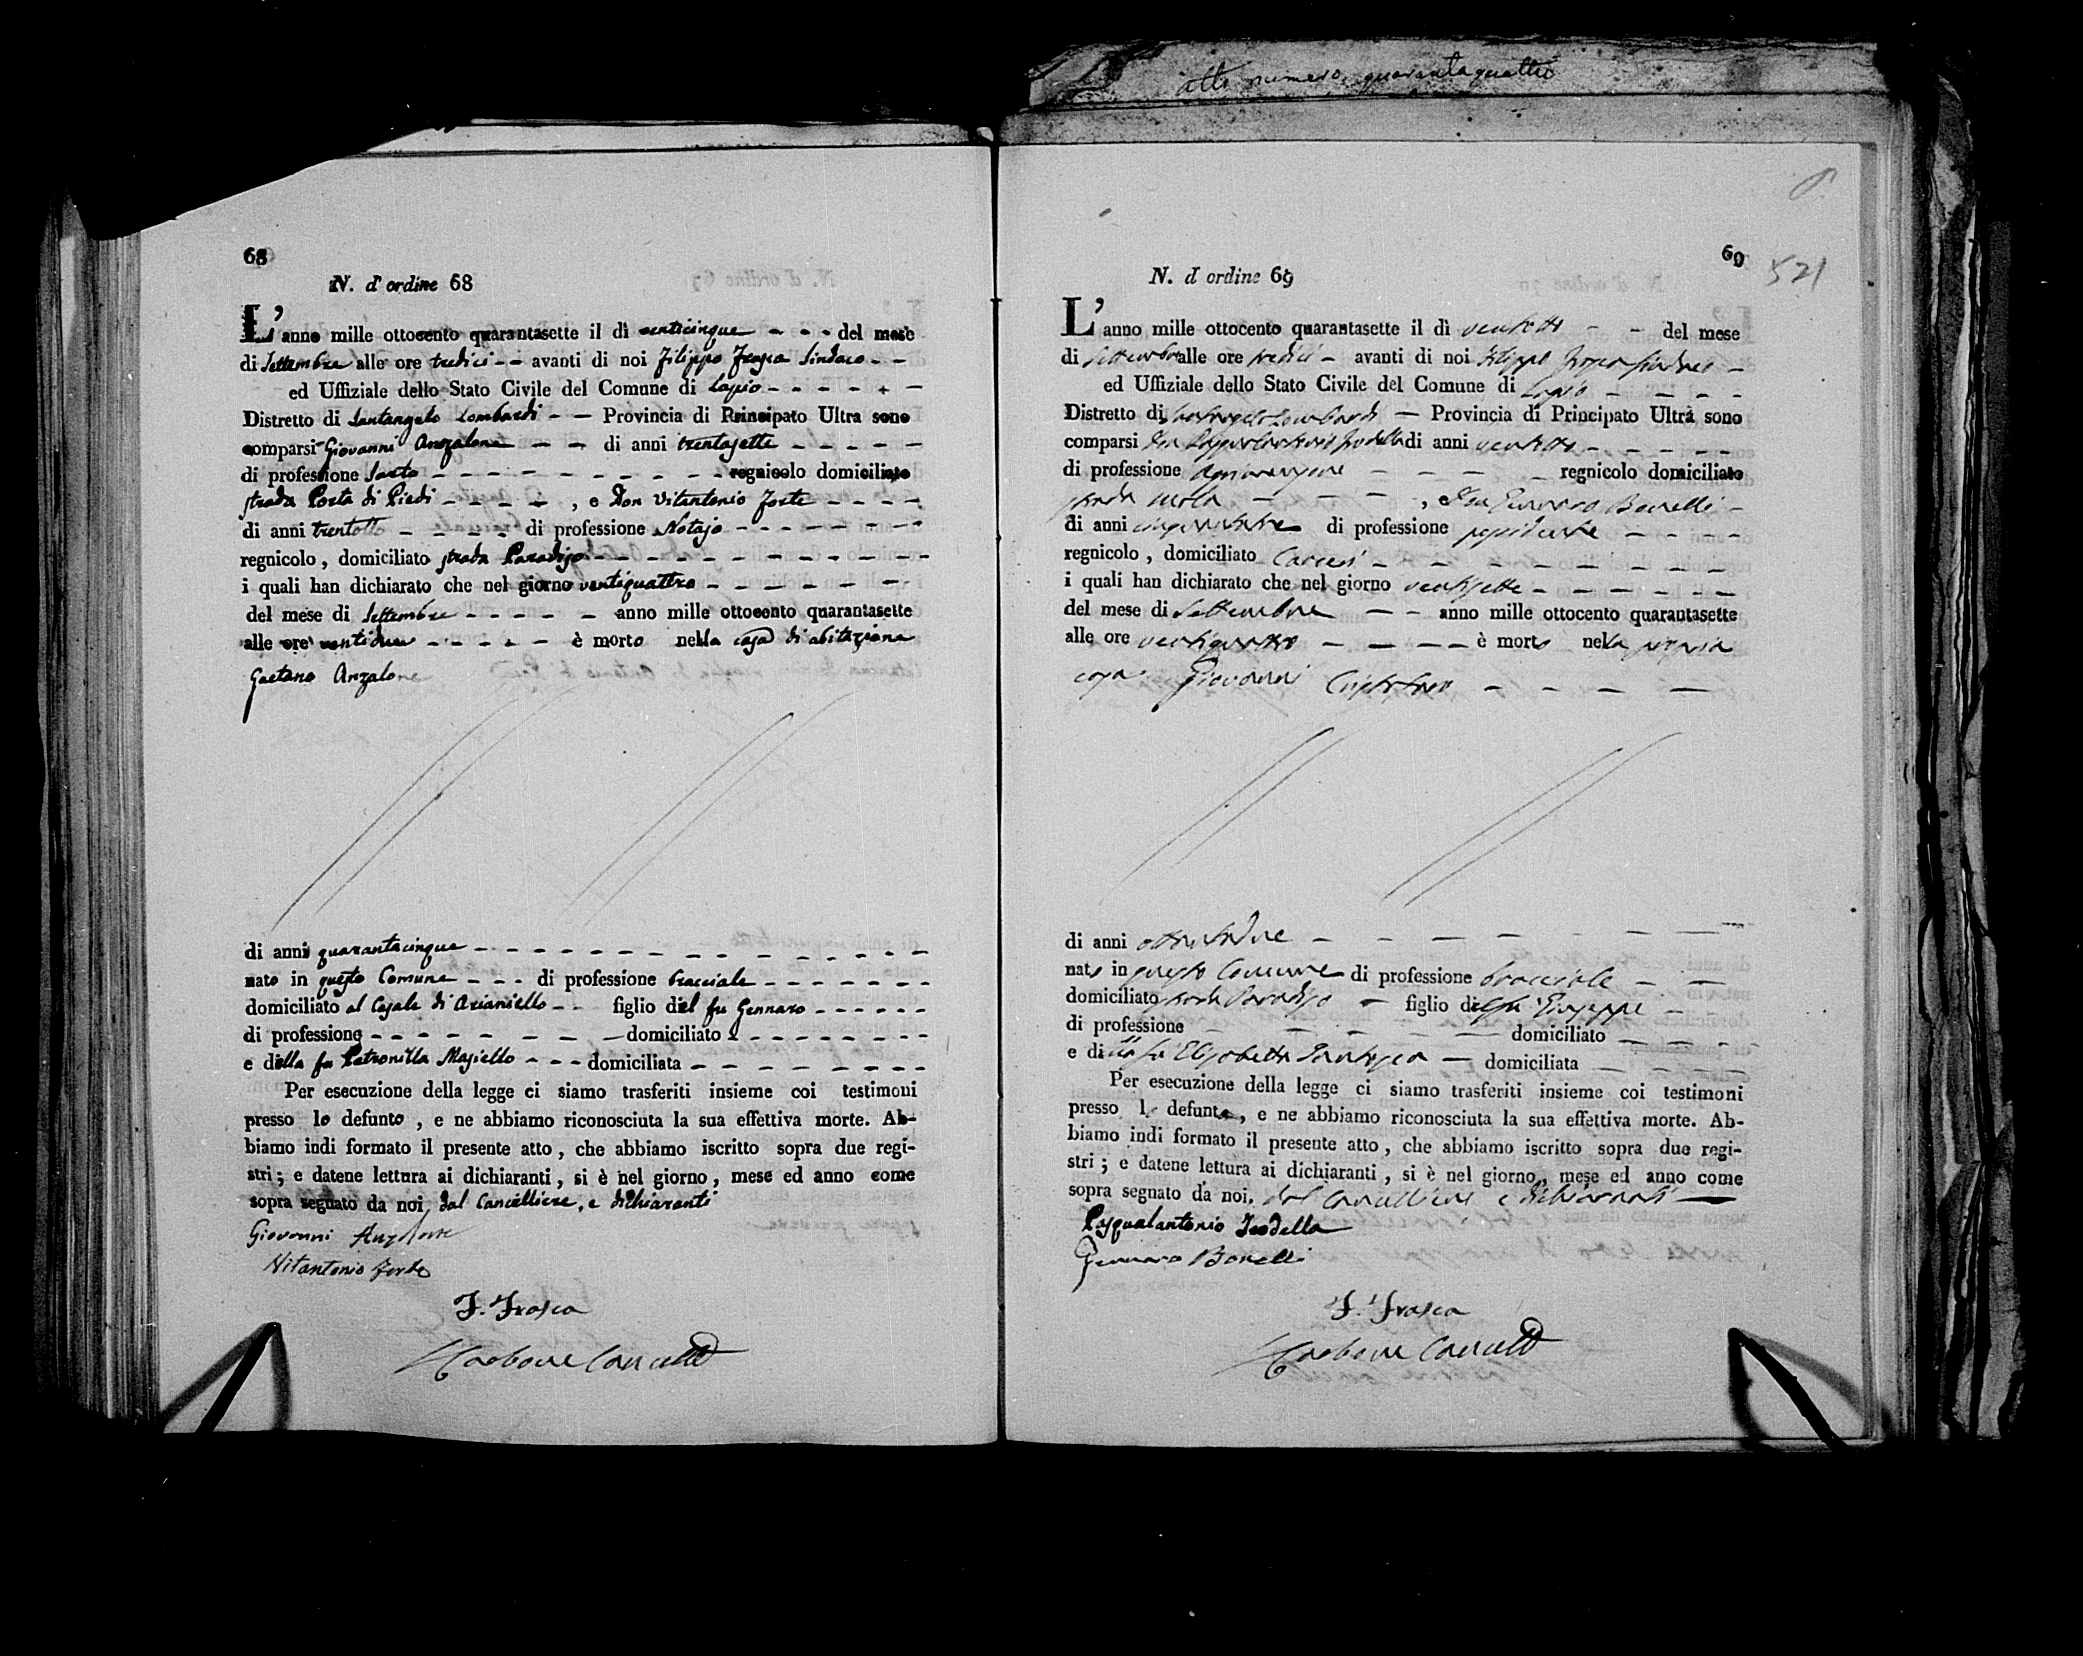 atto numero quarantaquattro
68
N. d'ordine 68
L'anno mille ottocento quarantasette il dì venticinque - - - del mese
di Settembre alle ore tredici - - avanti di noi Filippo Frasca Sindaco - -
ed Uffiziale dello Stato Civile del Comune di Lapio - - - - - -
Distretto di Santangelo Lombardi - - Provincia di Principato Ultra sono
comparsi Giovanni Anzalone - - di anni trentasette - - - - -
di professione Sarto - - - - - - - - - regnicolo domiciliato
strada Porta di Piedi - - - - , e Don Vitantonio Forte - - - -
di anni trentotto - - - - di professione Notajo - - - - - - -
regnicolo, domiciliato strada Paradiso - - - - - - - - - -
i quali han dichiarato che nel giorno ventiquattro - - - - - -
del mese di Settembre - - - - - anno mille ottocento quarantasette
alle ore ventidue - - - - - è morto nella casa di abitazione
Gaetano Anzalone
di anni quarantacinque - - - - - - - - - - - - -
nato in questo Comune - - - di professione bracciale - - - - - - -
domiciliato al Casale di Arianiello - - figlio del fu Gennaro - - - - - -
di professione - - - - - - - - domiciliato - - - - - - - -
e della fu Petronilla Masiello - - - domiciliata - - - - - - -
Per esecuzione della legge ci siamo trasferiti insieme coi testimoni
presso lo defunto, e ne abbiamo riconosciuta la sua effettiva morte. Ab-
biamo indi formato il presente atto, che abbiamo iscritto sopra due regi-
stri; e datene lettura ai dichiaranti, si è nel giorno, mese ed anno come
sopra segnato da noi, dal Cancelliere, e dichiaranti
Giovanni Anzalone
Vitantonio Forte
F. Frasca
Carbone Cancell
69
521
N. d'ordine 69
L'anno mille ottocento quarantasette il dì ventotto - - del mese
di Settembre alle ore tredici - avanti di noi Filippo Frasca Sindaco -
ed Uffiziale dello Stato Civile del Comune di Lapio - - - -
Distretto di Santangelo Lombardi - Provincia di Principato Ultra sono
comparsi Don Pasqualantonio Iodella di anni ventotto - - - - -
di professione - - - - regnicolo domiciliato
strada Mola - - - - , e Don Gennaro Bonelli -
di anni cinquantatre di professione possidente - - - -
regnicolo, domiciliato Carceri - - - - - - - -
i quali han dichiarato che nel giorno ventisette - - - - - -
del mese di Settembre - - anno mille ottocento quarantasette
alle ore ventiquattro - - - - è morto nella propria
casa Giovanni - - - - -
di anni ottantadue - - - - - - -
nato in questo Comune di professione bracciale - -
domiciliato strada Paradiso - figlio del fu Giuseppe -
di professione - - - - - domiciliato - - - -
e della fu Elisabetta - domiciliata - - - -
Per esecuzione della legge ci siamo trasferiti insieme coi testimoni
presso lo defunto, e ne abbiamo riconosciuta la sua effettiva morte. Ab-
biamo indi formato il presente atto, che abbiamo iscritto sopra due regi-
stri; e datene lettura ai dichiaranti, si è nel giorno, mese ed anno come
sopra segnato da noi, dal Cancelliere e dichiaranti -
Pasqualantonio Iodella
Gennaro Bonelli
F. Frasca
Carbone Cancell